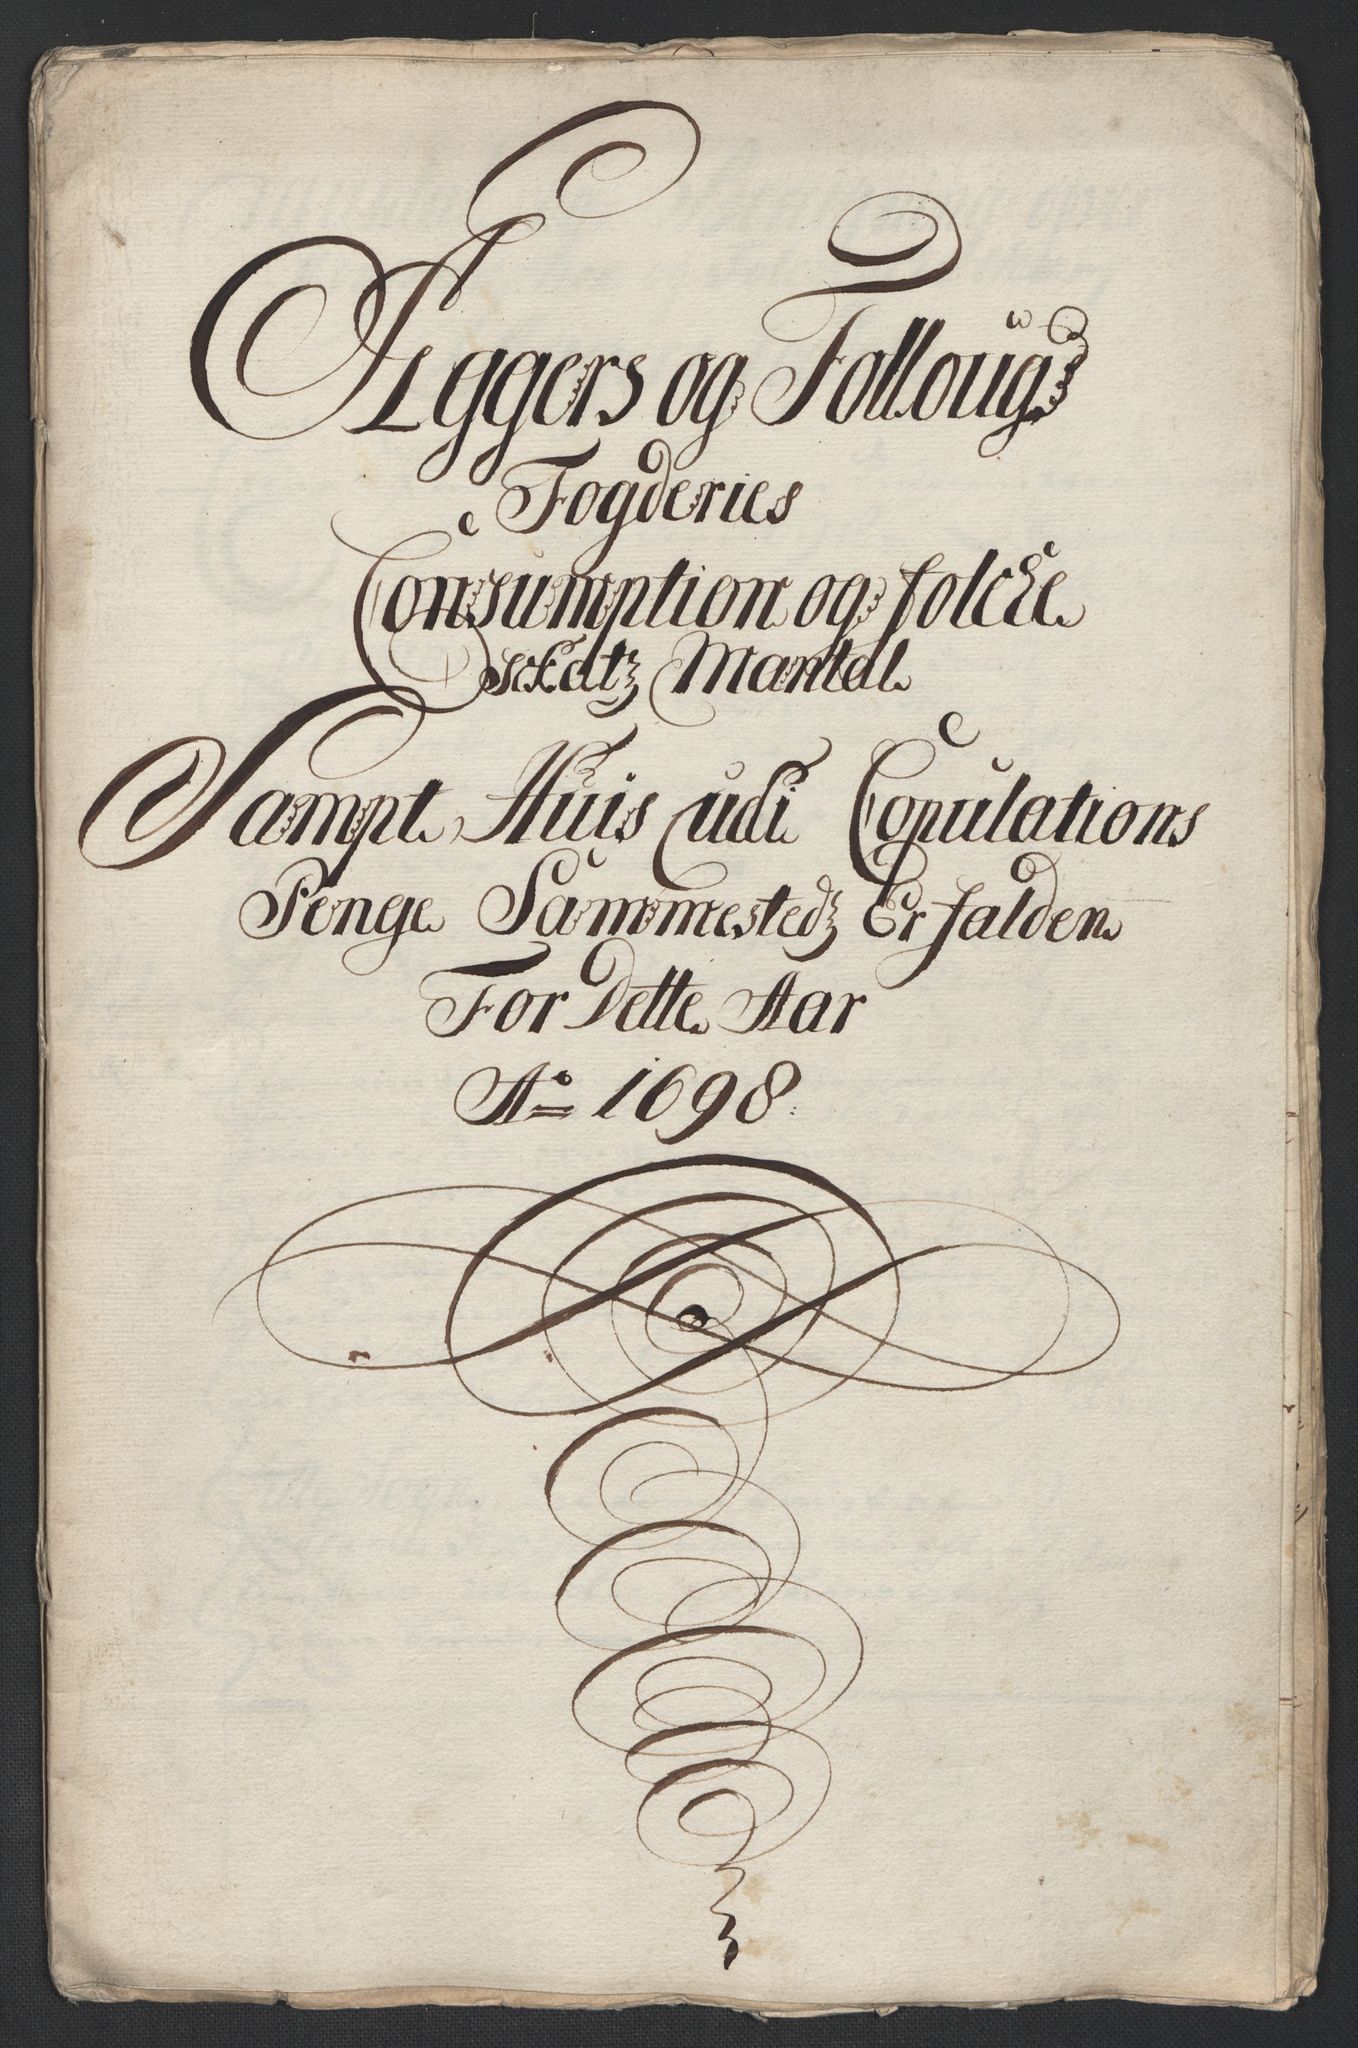 Aggers og Follougs
Fogderies
Consumption og folcke
skatz Mantal
Sampt Huis udi Copulations
Penge Sammestedz Er falden
For Dette Aar
Ao 1698